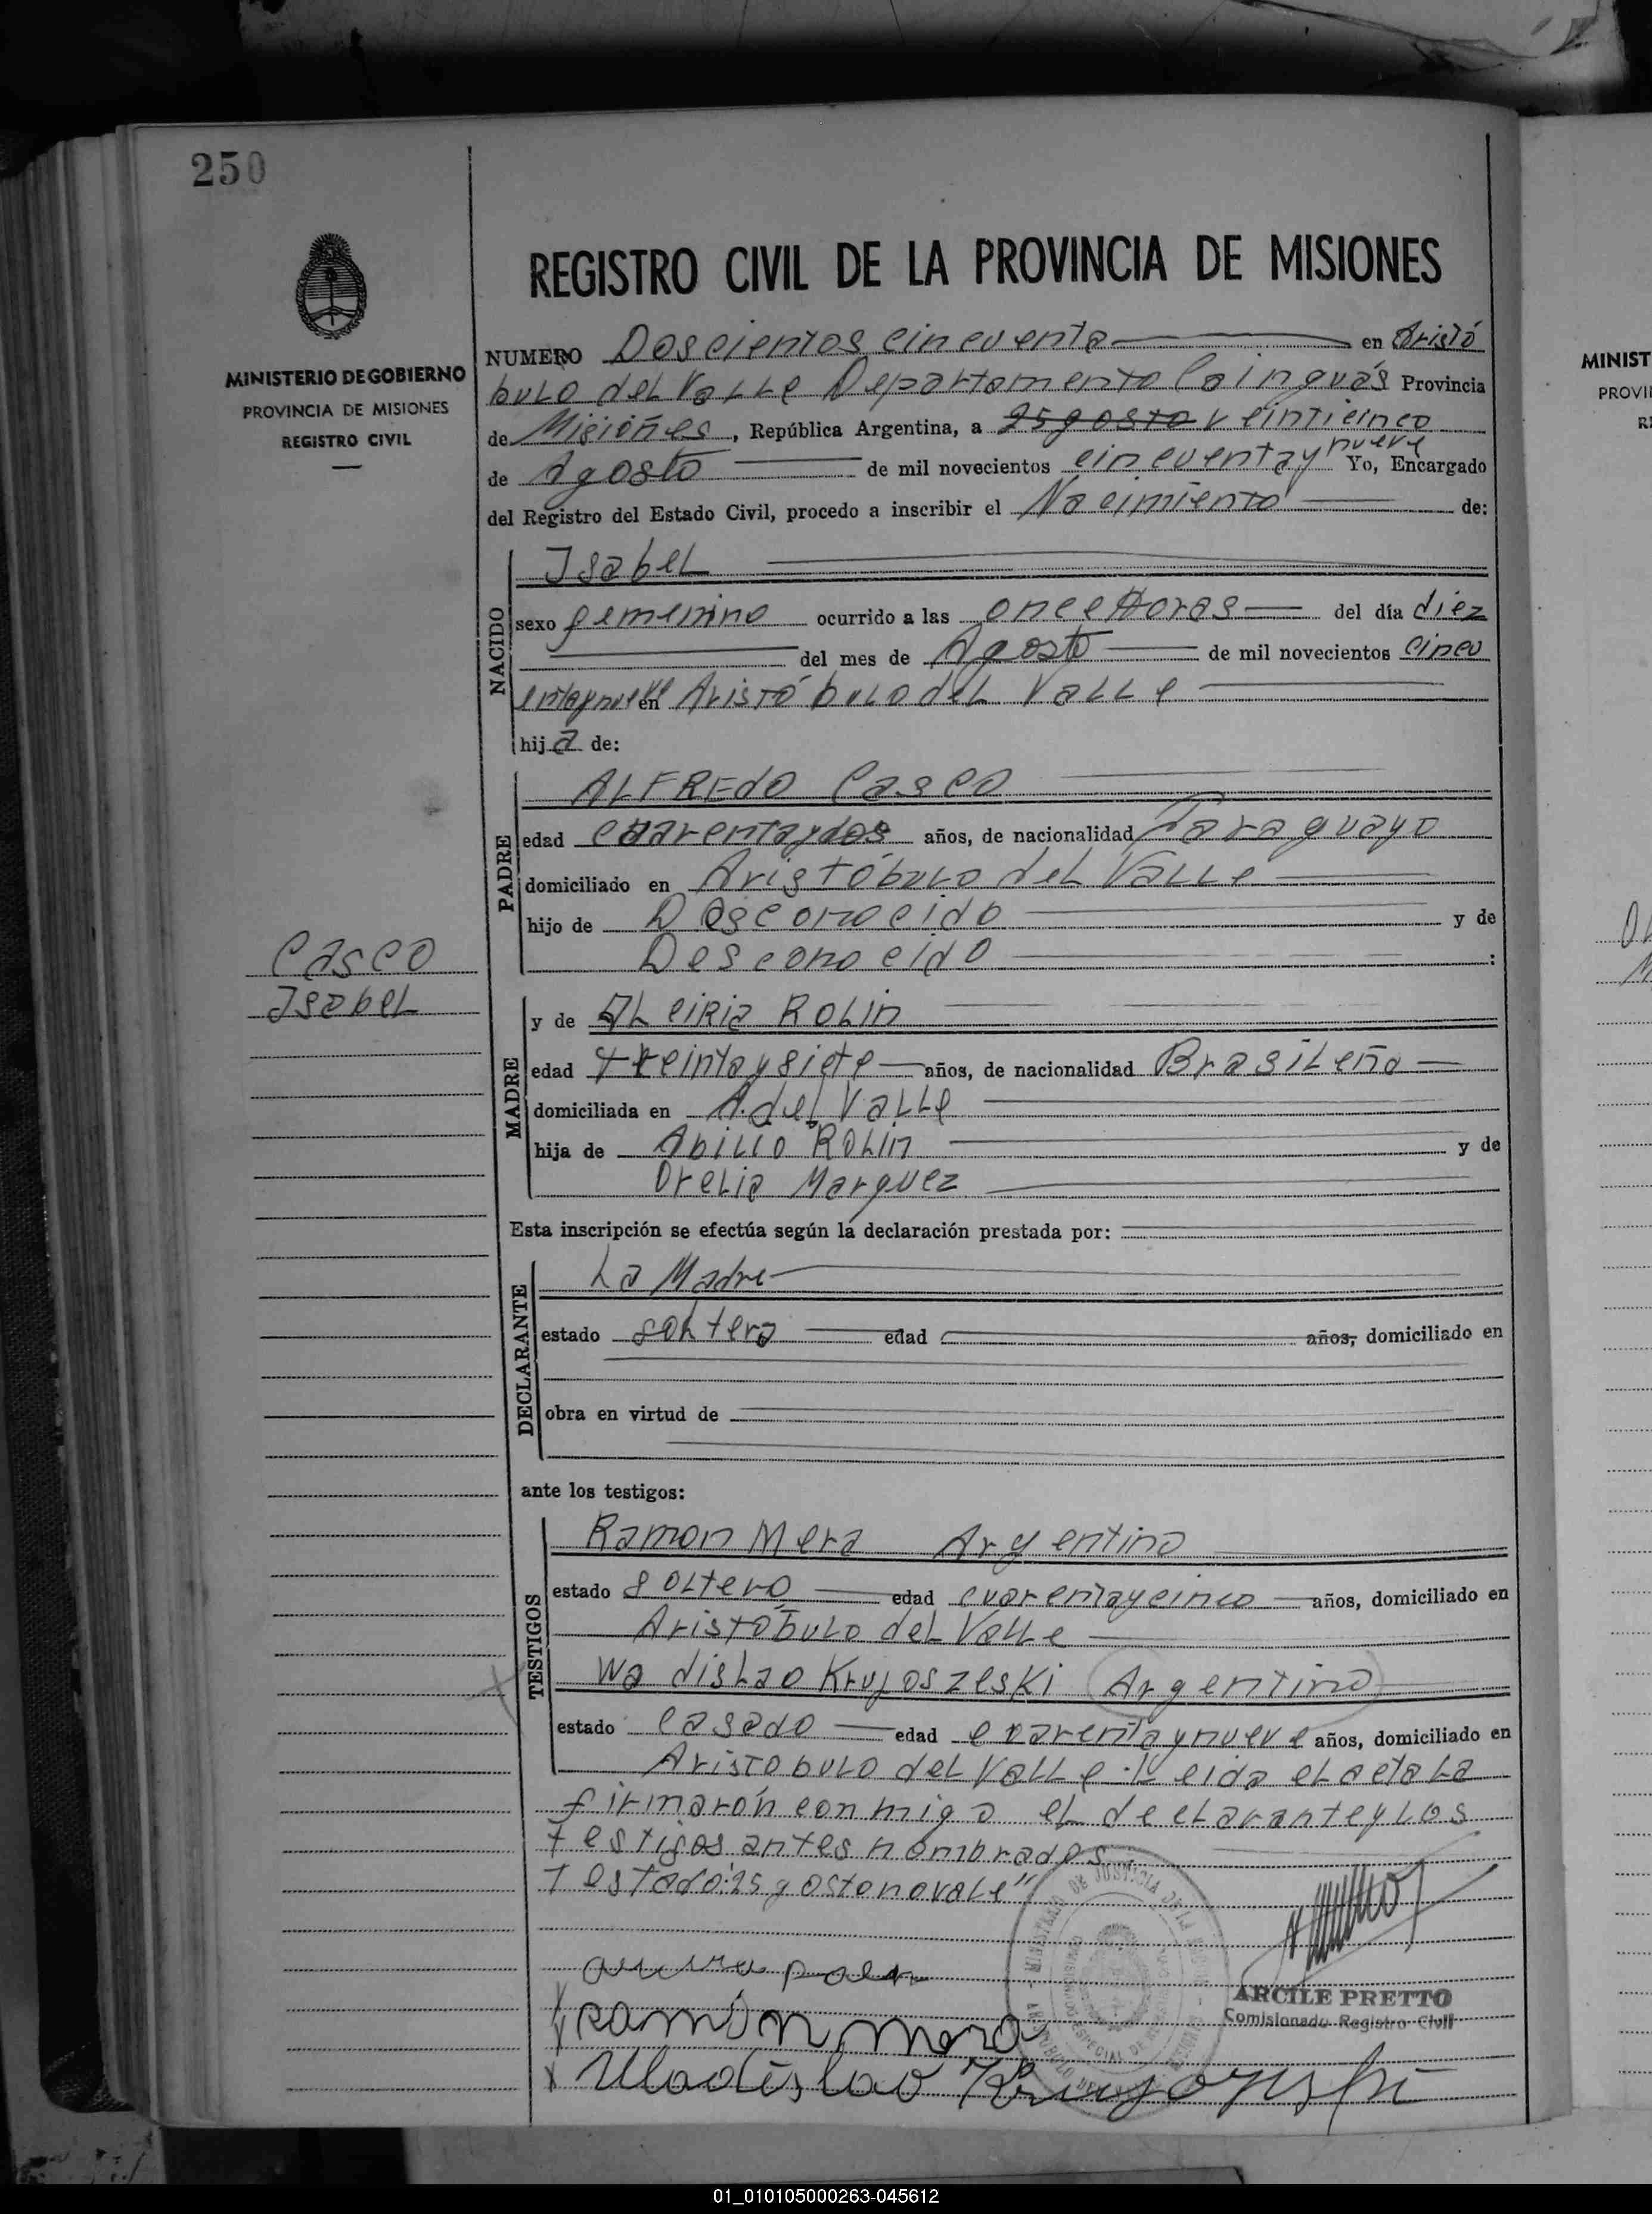 250
MINISTERIO DE GOBIERNO
PROVINCIA DE MISIONES
REGISTRO CIVIL
REGISTRO CIVIL DE LA PROVINCIA DE MISIONES
NUMERO Doscientos cincuenta en Aristó
bulo del Valle Departamento Cainguás Provincia
de Misiones, República Argentina, a 25gosto veinticinco
de Agosto de mil novecientos cincuentay nueve Yo, Encargado
del Registro del Estado Civil, procedo a inscribir el Nacimiento de:
NACIDO
Isabel
sexo femenino ocurrido a las once Horas del día diez
del mes de Agosto de mil novecientos cincu
entaynueve en Aristóbulo del Valle
hija de:
PADRE
ALFREdO Casco
edad cuarentaydos años, de nacionalidad Paraguayo
domiciliado en Aristóbulo del Valle
hijo de Desconocido y de
Desconocido :
Casco
Isabel
MADRE
y de ALciRia ROLin
edad treintaysiete años, de nacionalidad Brasileña
domiciliada en A. del Valle
hija de Abilio Rolin y de
Orelia Marquez
Esta inscripción se efectúa según la declaración prestada por:
DECLARANTE
La Madre
estado soltera edad años, domiciliado en
obra en virtud de
ante los testigos:
TESTIGOS
Ramon Mera Argentino
estado soltero edad cuarentaycinco años, domiciliado en
Aristóbulo del Valle
Wadislao Krujoszeski Argentino
estado casado edad cuarentaynueve años, domiciliado en
Aristobulo del Valle. Leida el acta La
firmarón conmigo el declarante y Los
testigos antes nombrados
Testado: 25gostonovale"
ARCILE PRETTO
Comisionado Registro Civil
Ramón mera
MINIST
PROVI
R
01_010105000263-045612